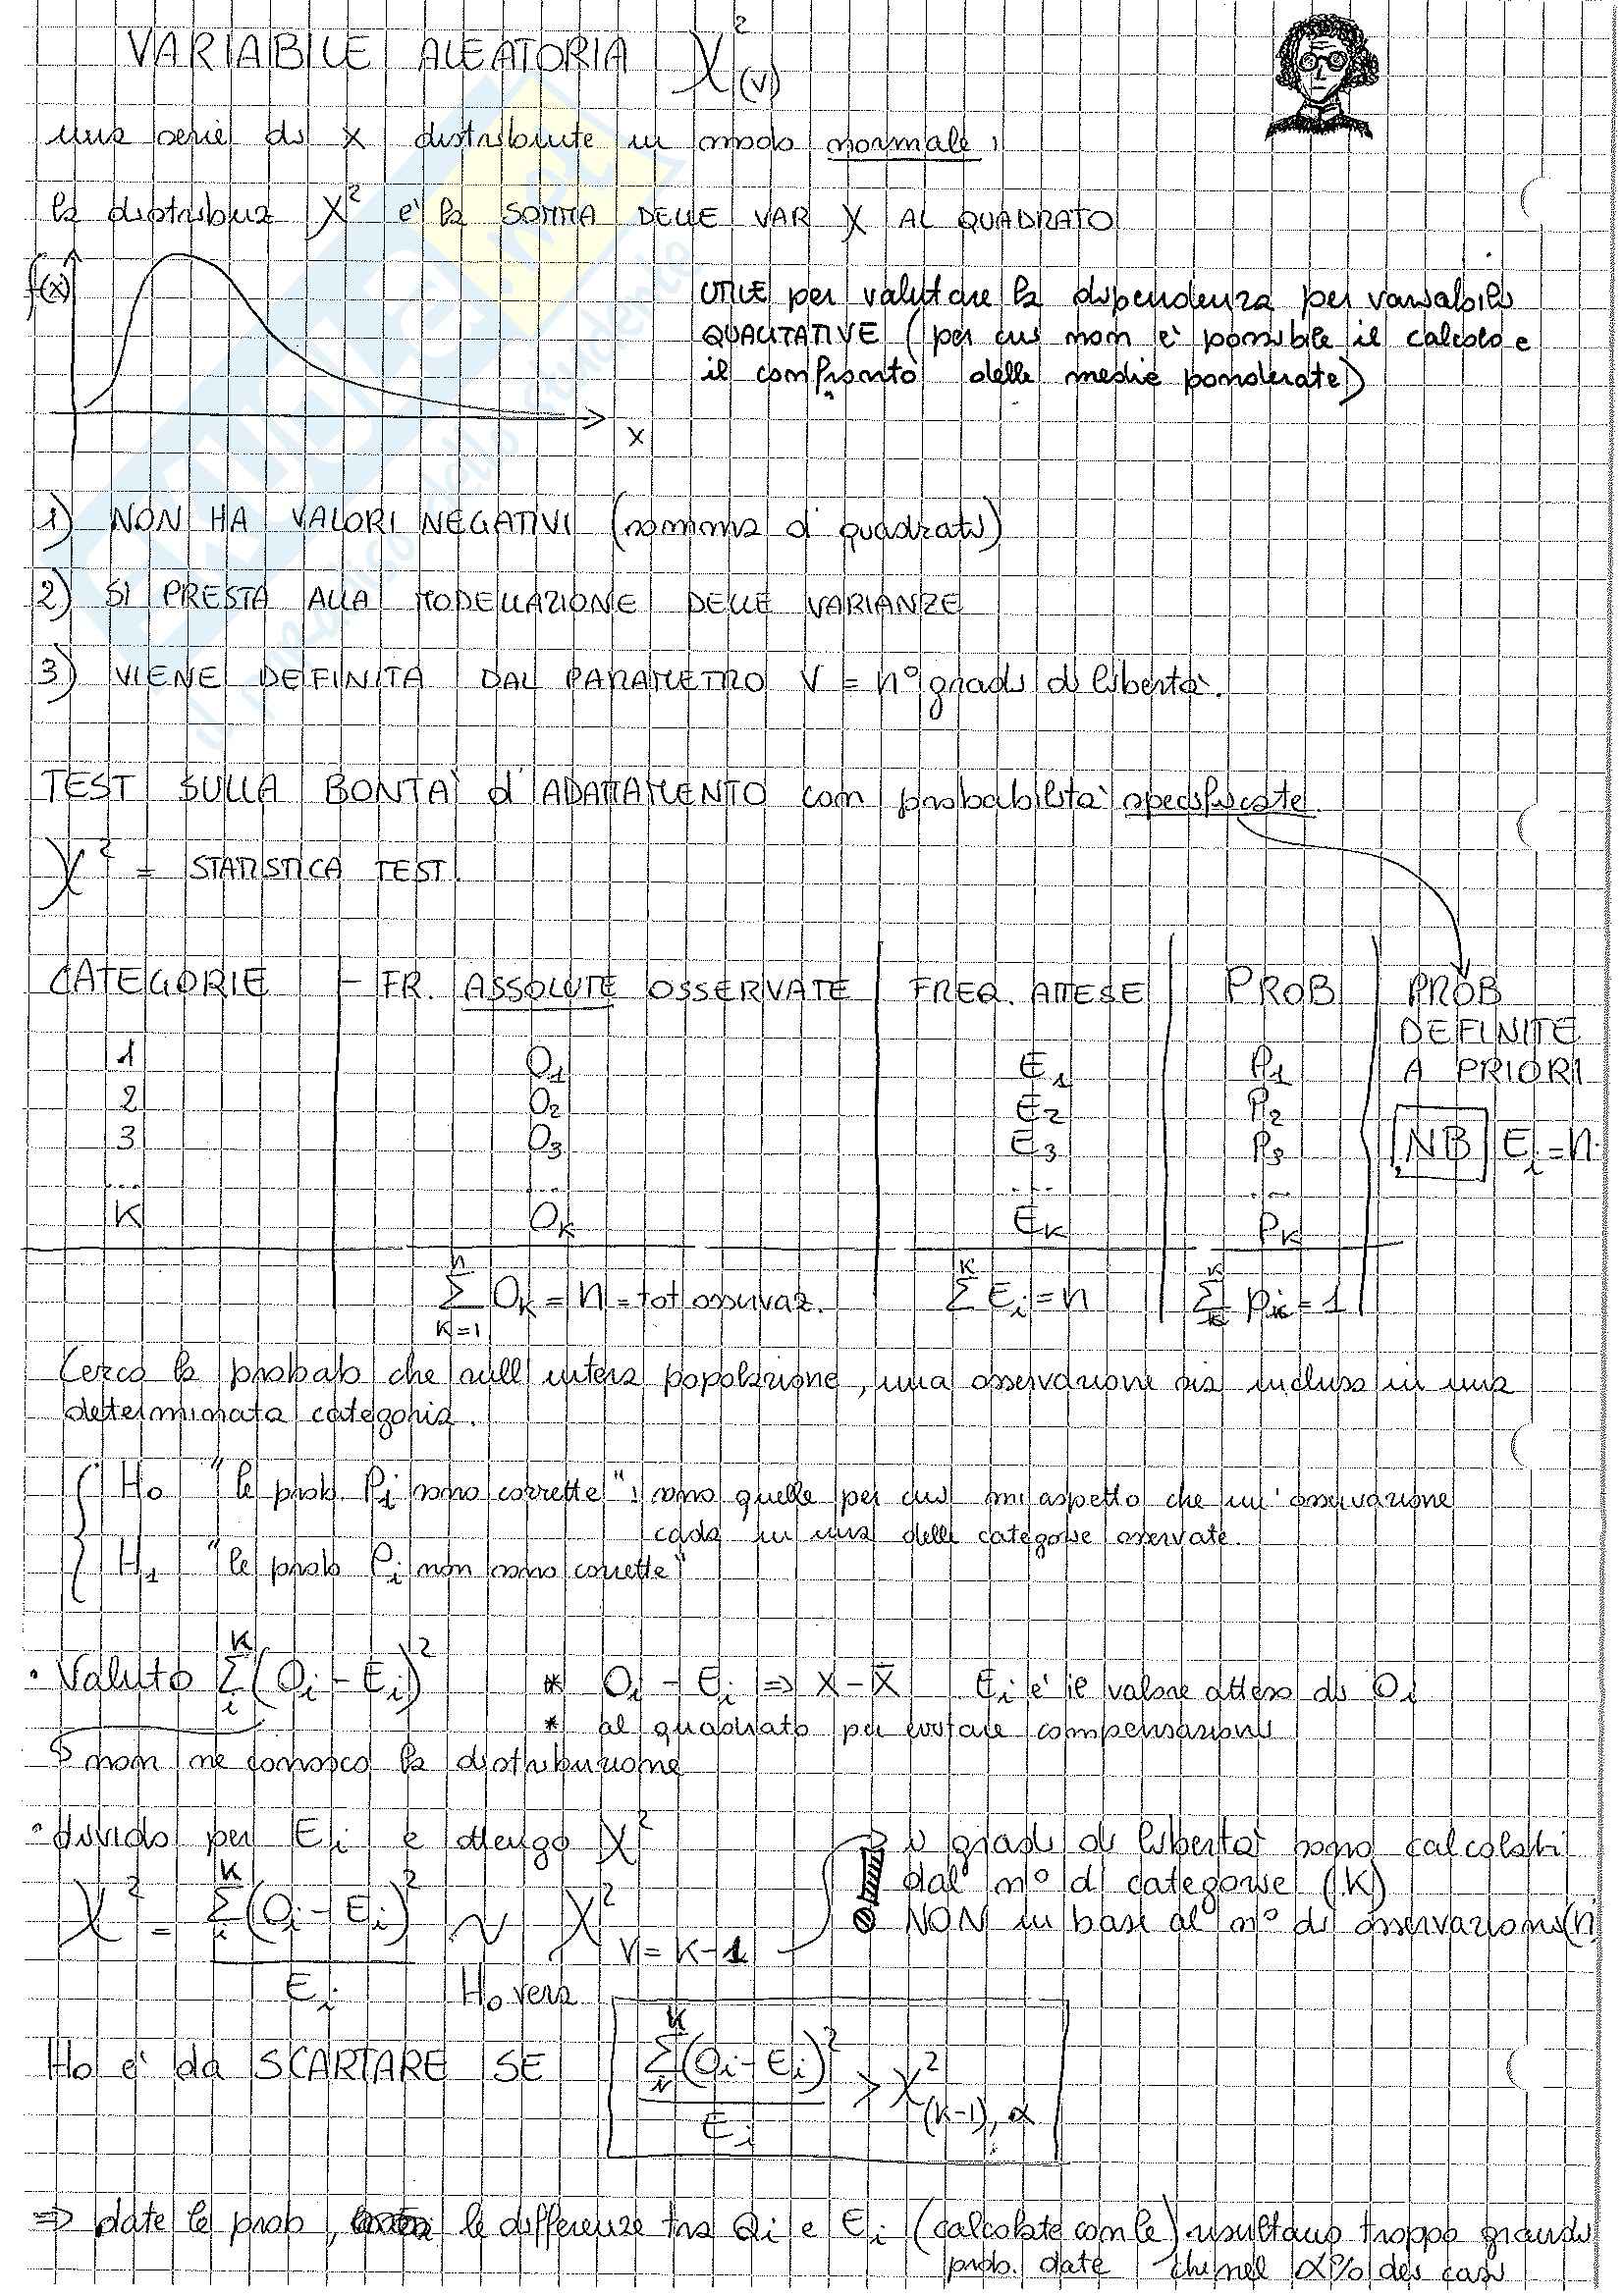 VARIABILE ALEATORIA χ²(v)
una serie di x distribuite in modo normale:
la distribuz χ² è la SOMMA DELLE VAR X AL QUADRATO
f(x)
x
UTILE per valutare la dipendenza per variabili
QUALITATIVE (per cui non è possibile il calcolo e
il confronto delle medie ponderate)
1) NON HA VALORI NEGATIVI (somma d quadrati)
2) SI PRESTA ALLA MODELLAZIONE DELLE VARIANZE
3) VIENE DEFINITA DAL PARAMETRO V = n° gradi di libertà.
TEST SULLA BONTA' d'ADATTAMENTO con probabilità specificate.
χ² = STATISTICA TEST.
CATEGORIE FR. ASSOLUTE OSSERVATE FREQ. ATTESE PROB PROB
DEFINITE
A PRIORI
1 O1 E1 P1
2 O2 E2 P2
3 O3 E3 P3 NB Ei = n·
... ... ... ...
K OK EK PK
n∑K=1 OK = n = tot osservaz. K∑ Ei = n K∑K pK = 1
Cerco la probab che sull'intera popolazione, una osservazione sia inclusa in una
determinata categoria.
H0 "le prob Pi sono corrette": sono quelle per cui mi aspetto che un'osservazione
cada in una delle categorie osservate.
H1 "le prob Pi non sono corrette"
• Valuto K∑i (Oi - Ei)² * Oi - Ei => x - x̄ Ei è il valore atteso di Oi
* al quadrato per evitare compensazioni
non ne conosco la distribuzione
• divido per Ei e ottengo χ² i gradi di libertà sono calcolati
dal n° di categorie (K)
χ² = K∑i (Oi - Ei)² / Ei ~ χ² v=K-1 NON in base al n° di osservazioni (n
H0 vera
H0 è da SCARTARE SE K∑i (Oi - Ei)² / Ei > χ² (K-1), α
=> date le prob, le differenze tra Oi e Ei (calcolate con le) risultano troppo grandi
prob. date che nel α% dei casi